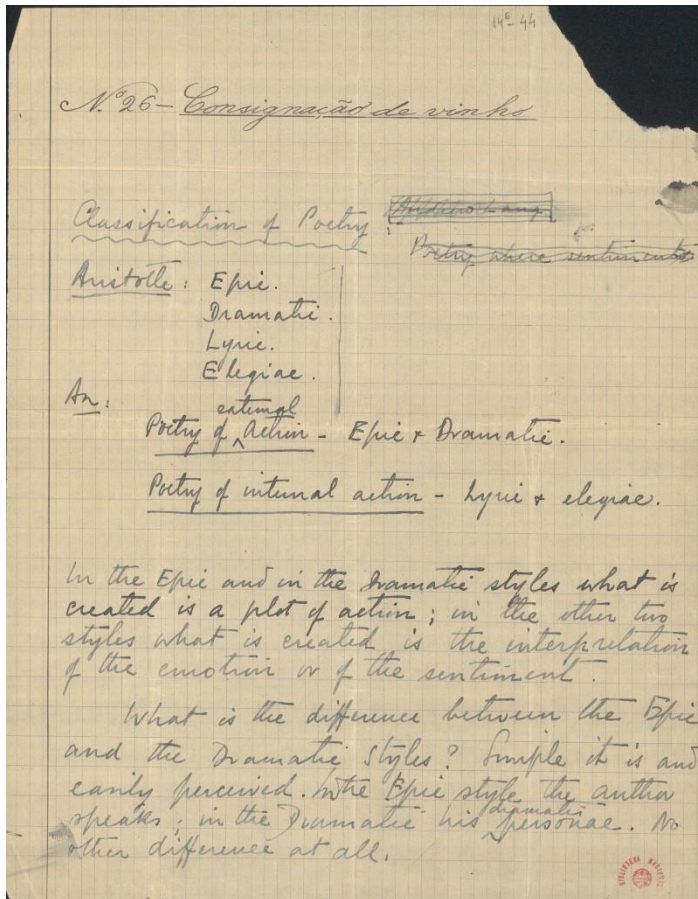 14E-44
Nº 26 – Consignação de vinho
Classification of Poetry
Poetry where sentiments
Aristotle: Epic.
Dramatic.
Lyric.
Elegiac.
An:
external
Poetry of ^ Action – Epic + Dramatic.
Poetry of internal action – Lyric + elegiac.
In the Epic and in the Dramatic styles what is
created is a plot of action; in the other two
styles what is created is the interpretation
of the emotion or of the sentiment.
What is the difference between the Epic
and the Dramatic Styles? Simple it is and
easily perceived. In the Epic style the author
dramatis
speaks; in the Dramatic his ^ personae. No
other difference at all.
BIBLIOTHECA NACIONAL